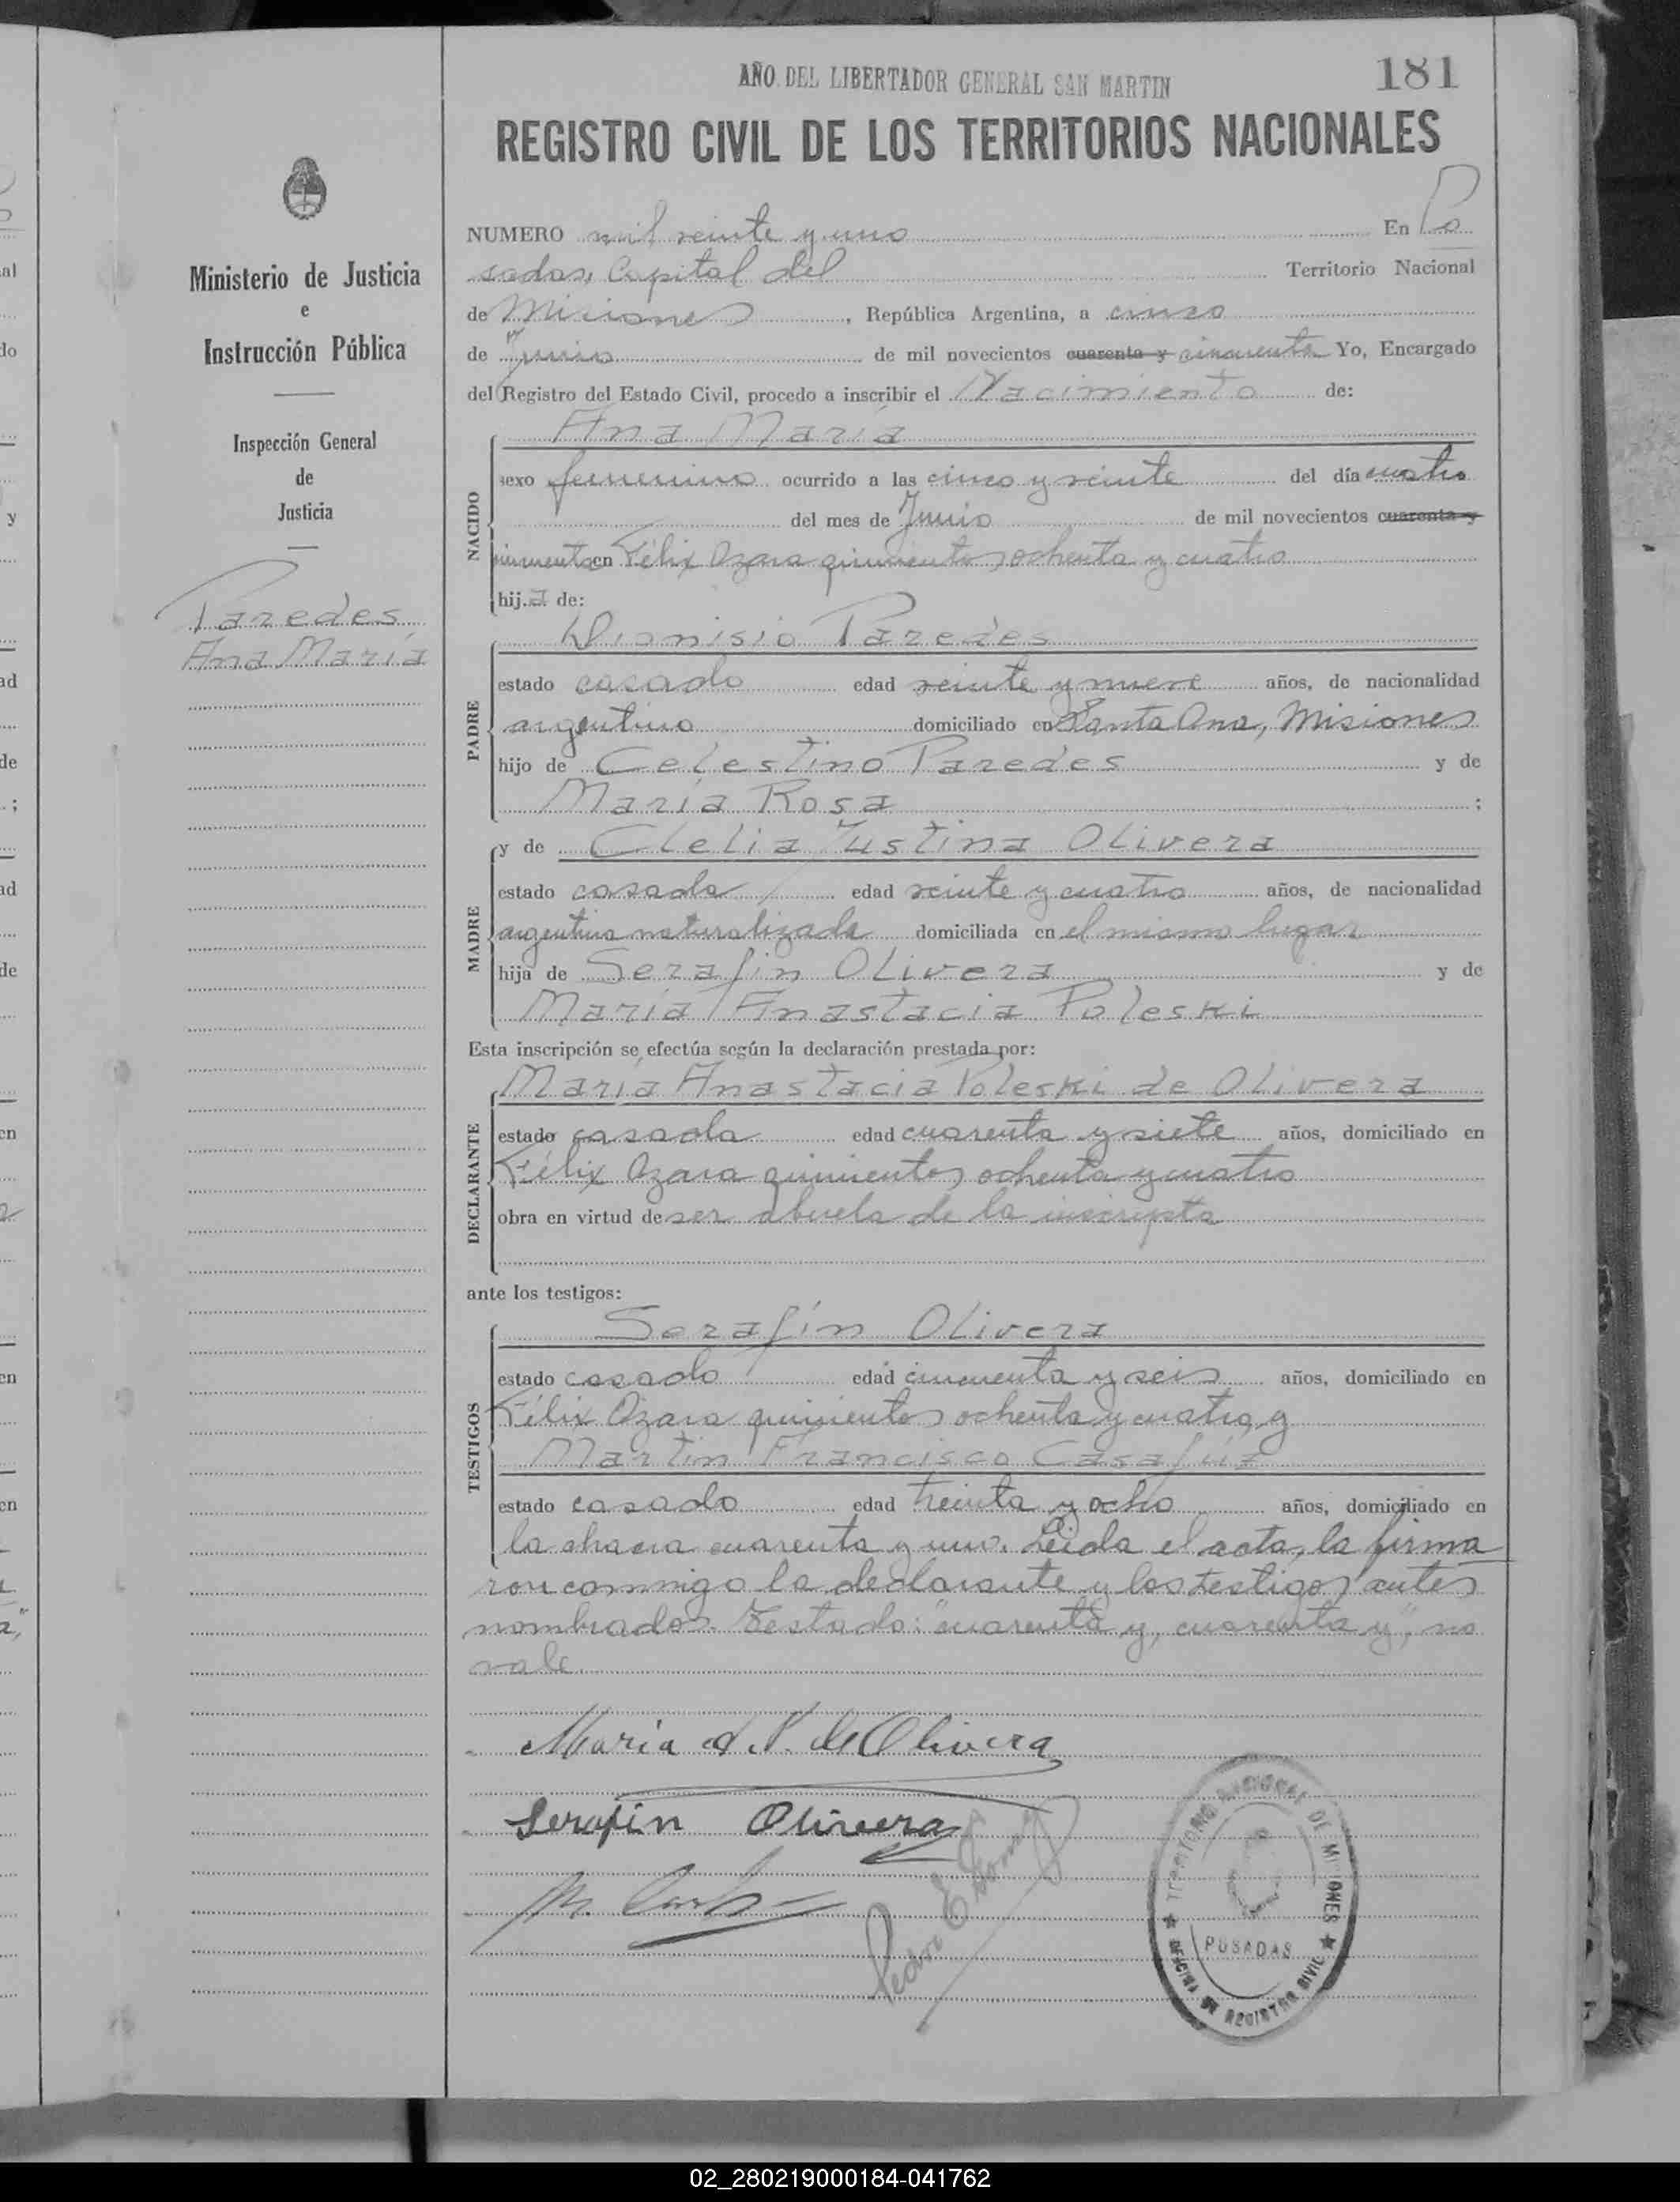 AÑO DEL LIBERTADOR GENERAL SAN MARTIN
181
REGISTRO CIVIL DE LOS TERRITORIOS NACIONALES
Ministerio de Justicia
e
Instrucción Pública
Inspección General
de
Justicia
Paredes
Ana María
NUMERO mil veinte y uno En Po
sadas, Capital del Territorio Nacional
de Misiones, República Argentina, a cinco
de Junio de mil novecientos cuarenta y cincuenta Yo, Encargado
del Registro del Estado Civil, procedo a inscribir el Nacimiento de:
NACIDO
Ana María
sexo femenino ocurrido a las cinco y veinte del día cuatro
del mes de Junio de mil novecientos cuarenta y
cincuenta en Félix Azara quinientos ochenta y cuatro
hija de:
PADRE
Dionisio Paredes
estado casado edad veinte y nueve años, de nacionalidad
argentino domiciliado en Santa Ana, Misiones
hijo de Celestino Paredes y de
María Rosa ;
MADRE
y de Clelia Justina Olivera
estado casada edad veinte y cuatro años, de nacionalidad
argentina naturalizada domiciliada en el mismo lugar
hija de Serafín Olivera y de
María Anastacia Poleski
Esta inscripción se efectúa según la declaración prestada por:
DECLARANTE
María Anastacia Poleski de Olivera
estado casada edad cuarenta y siete años, domiciliado en
Félix Azara quinientos ochenta y cuatro
obra en virtud de ser abuela de la inscripta
ante los testigos:
TESTIGOS
Serafín Olivera
estado casado edad cincuenta y seis años, domiciliado en
Félix Azara quinientos ochenta y cuatro, y
Martín Francisco Casafúz
estado casado edad treinta y ocho años, domiciliado en
la chacra cuarenta y uno. Leída el acta, la firma
ron conmigo la declarante y los testigos antes
nombrados. Testado: "cuarenta y, cuarenta y", no
vale.
María A. P. de Olivera
Serafin Olivera
TERRITORIO NACIONAL DE MISIONES
POSADAS
OFICINA DE REGISTRO CIVIL
02_280219000184-041762